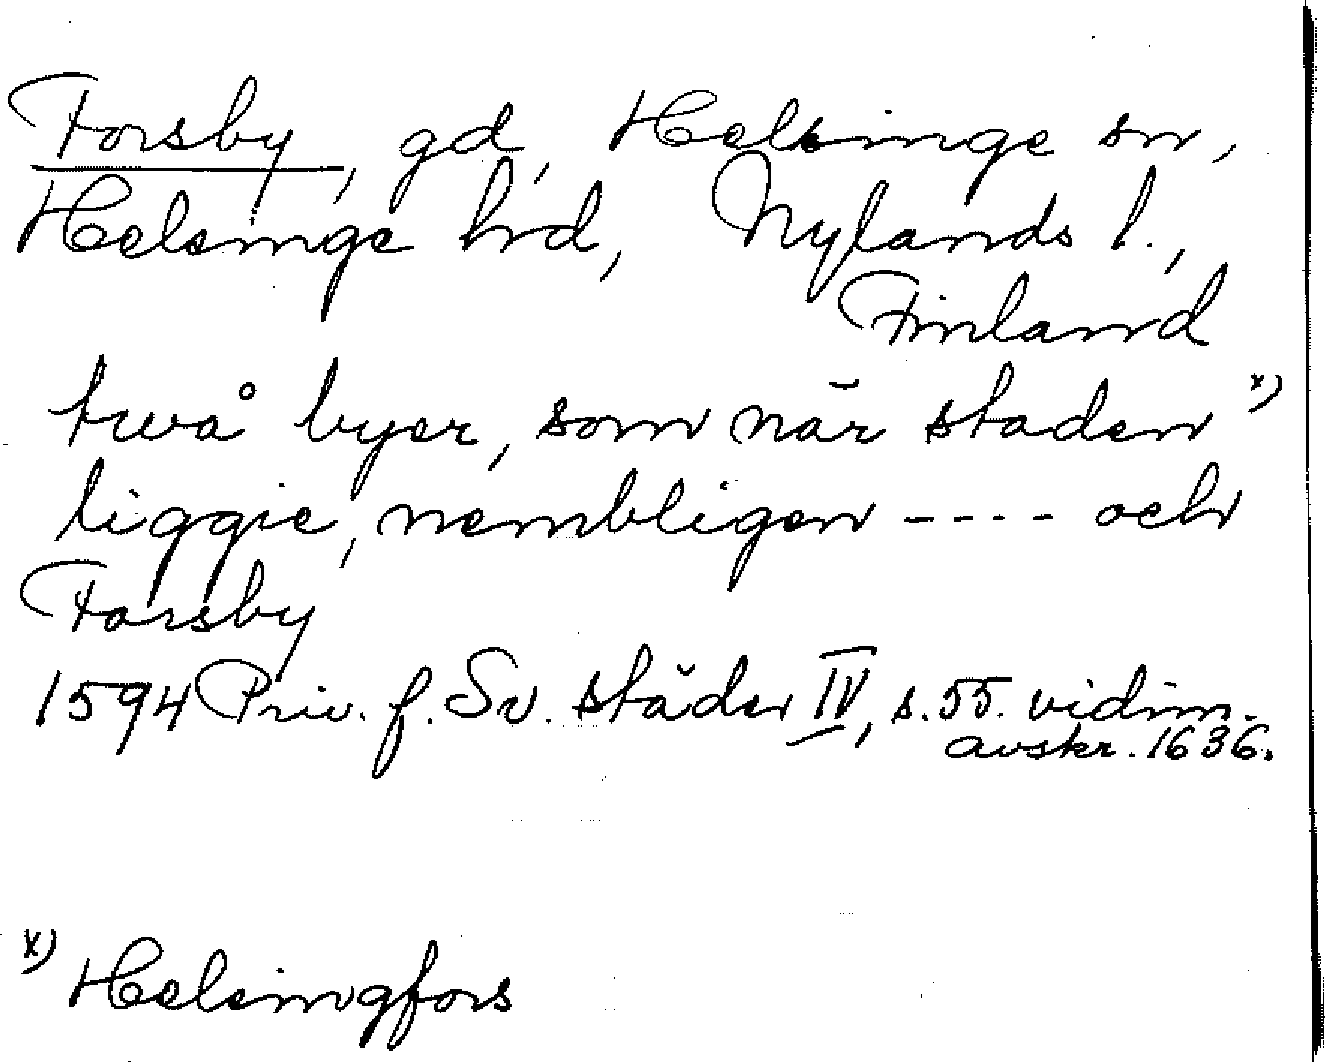 Forsby, gd, Helsinge sn,
Helsinge hrd, Nylands l.,
Finland
twå byer, som när staden x)
liggie, nembligen ---- och
Forsby
1594 Priv. f. Sv. städer IV, s. 55. vidim.
avskr. 1636.
x) Helsingfors